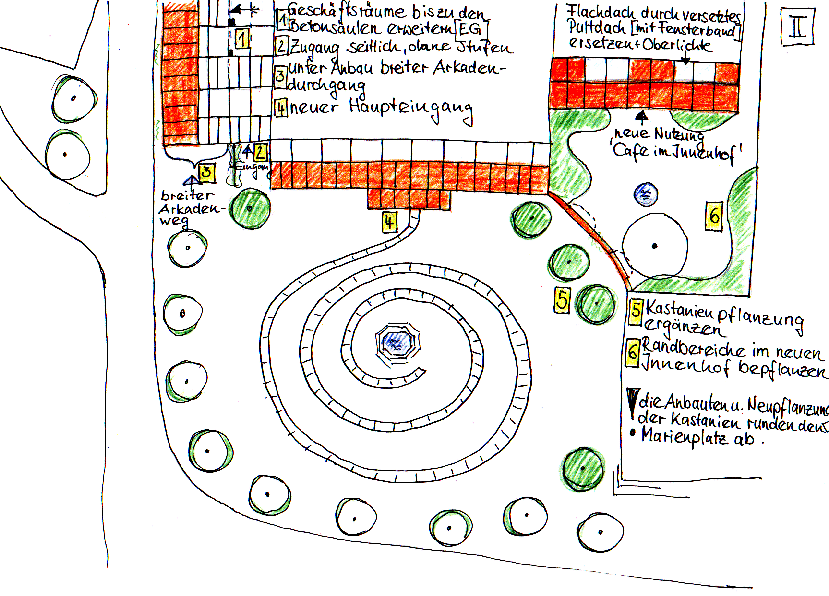 1 Geschäftsräume bis zu den
Betonsäulen erweitern [EG]
2 Zugang seitlich, ohne Stufen
3 unter Anbau breiter Arkaden-
durchgang
4 neuer Haupteingang
Flachdach durch versetztes
Pultdach [mit Fensterband]
ersetzen + Oberlichte
II
1
2
Eingang
3
breiter
Arkaden-
weg
4
neue Nutzung
'Cafe im Innenhof'
6
5
5 Kastanienpflanzung
ergänzen
6 Randbereiche im neuen
Innenhof bepflanzen
! die Anbauten u. Neupflanzung
der Kastanien runden den
Marienplatz ab.